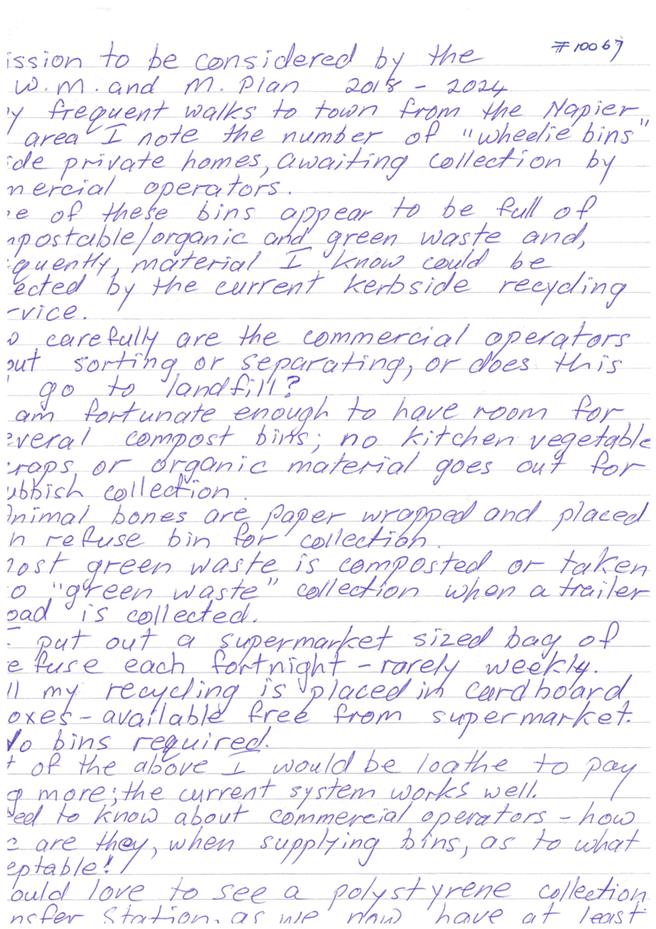 #10067
ission to be considered by the
W.M. and M. Plan 2018 - 2024
y frequent walks to town from the Napier
area I note the number of "wheelie bins"
ide private homes, awaiting collection by
mercial operators.
e of these bins appear to be full of
mpostable/organic and green waste and,
quently, material I know could be
ected by the current kerbside recycling
rvice.
o carefully are the commercial operators
out sorting or separating, or does this
go to landfill?
am fortunate enough to have room for
everal compost bins; no kitchen vegetable
craps or organic material goes out for
ubbish collection.
Animal bones are paper wrapped and placed
n refuse bin for collection.
Most green waste is composted or taken
o "green waste" collection when a trailer
oad is collected.
I put out a supermarket sized bag of
efuse each fortnight - rarely weekly.
ll my recycling is placed in cardboard
oxes - available free from supermarket.
No bins required.
t of the above I would be loathe to pay
g more; the current system works well.
eed to know about commercial operators - how
are they, when supplying bins, as to what
eptable!
ould love to see a polystyrene collection
nsfer Station, as we now have at least